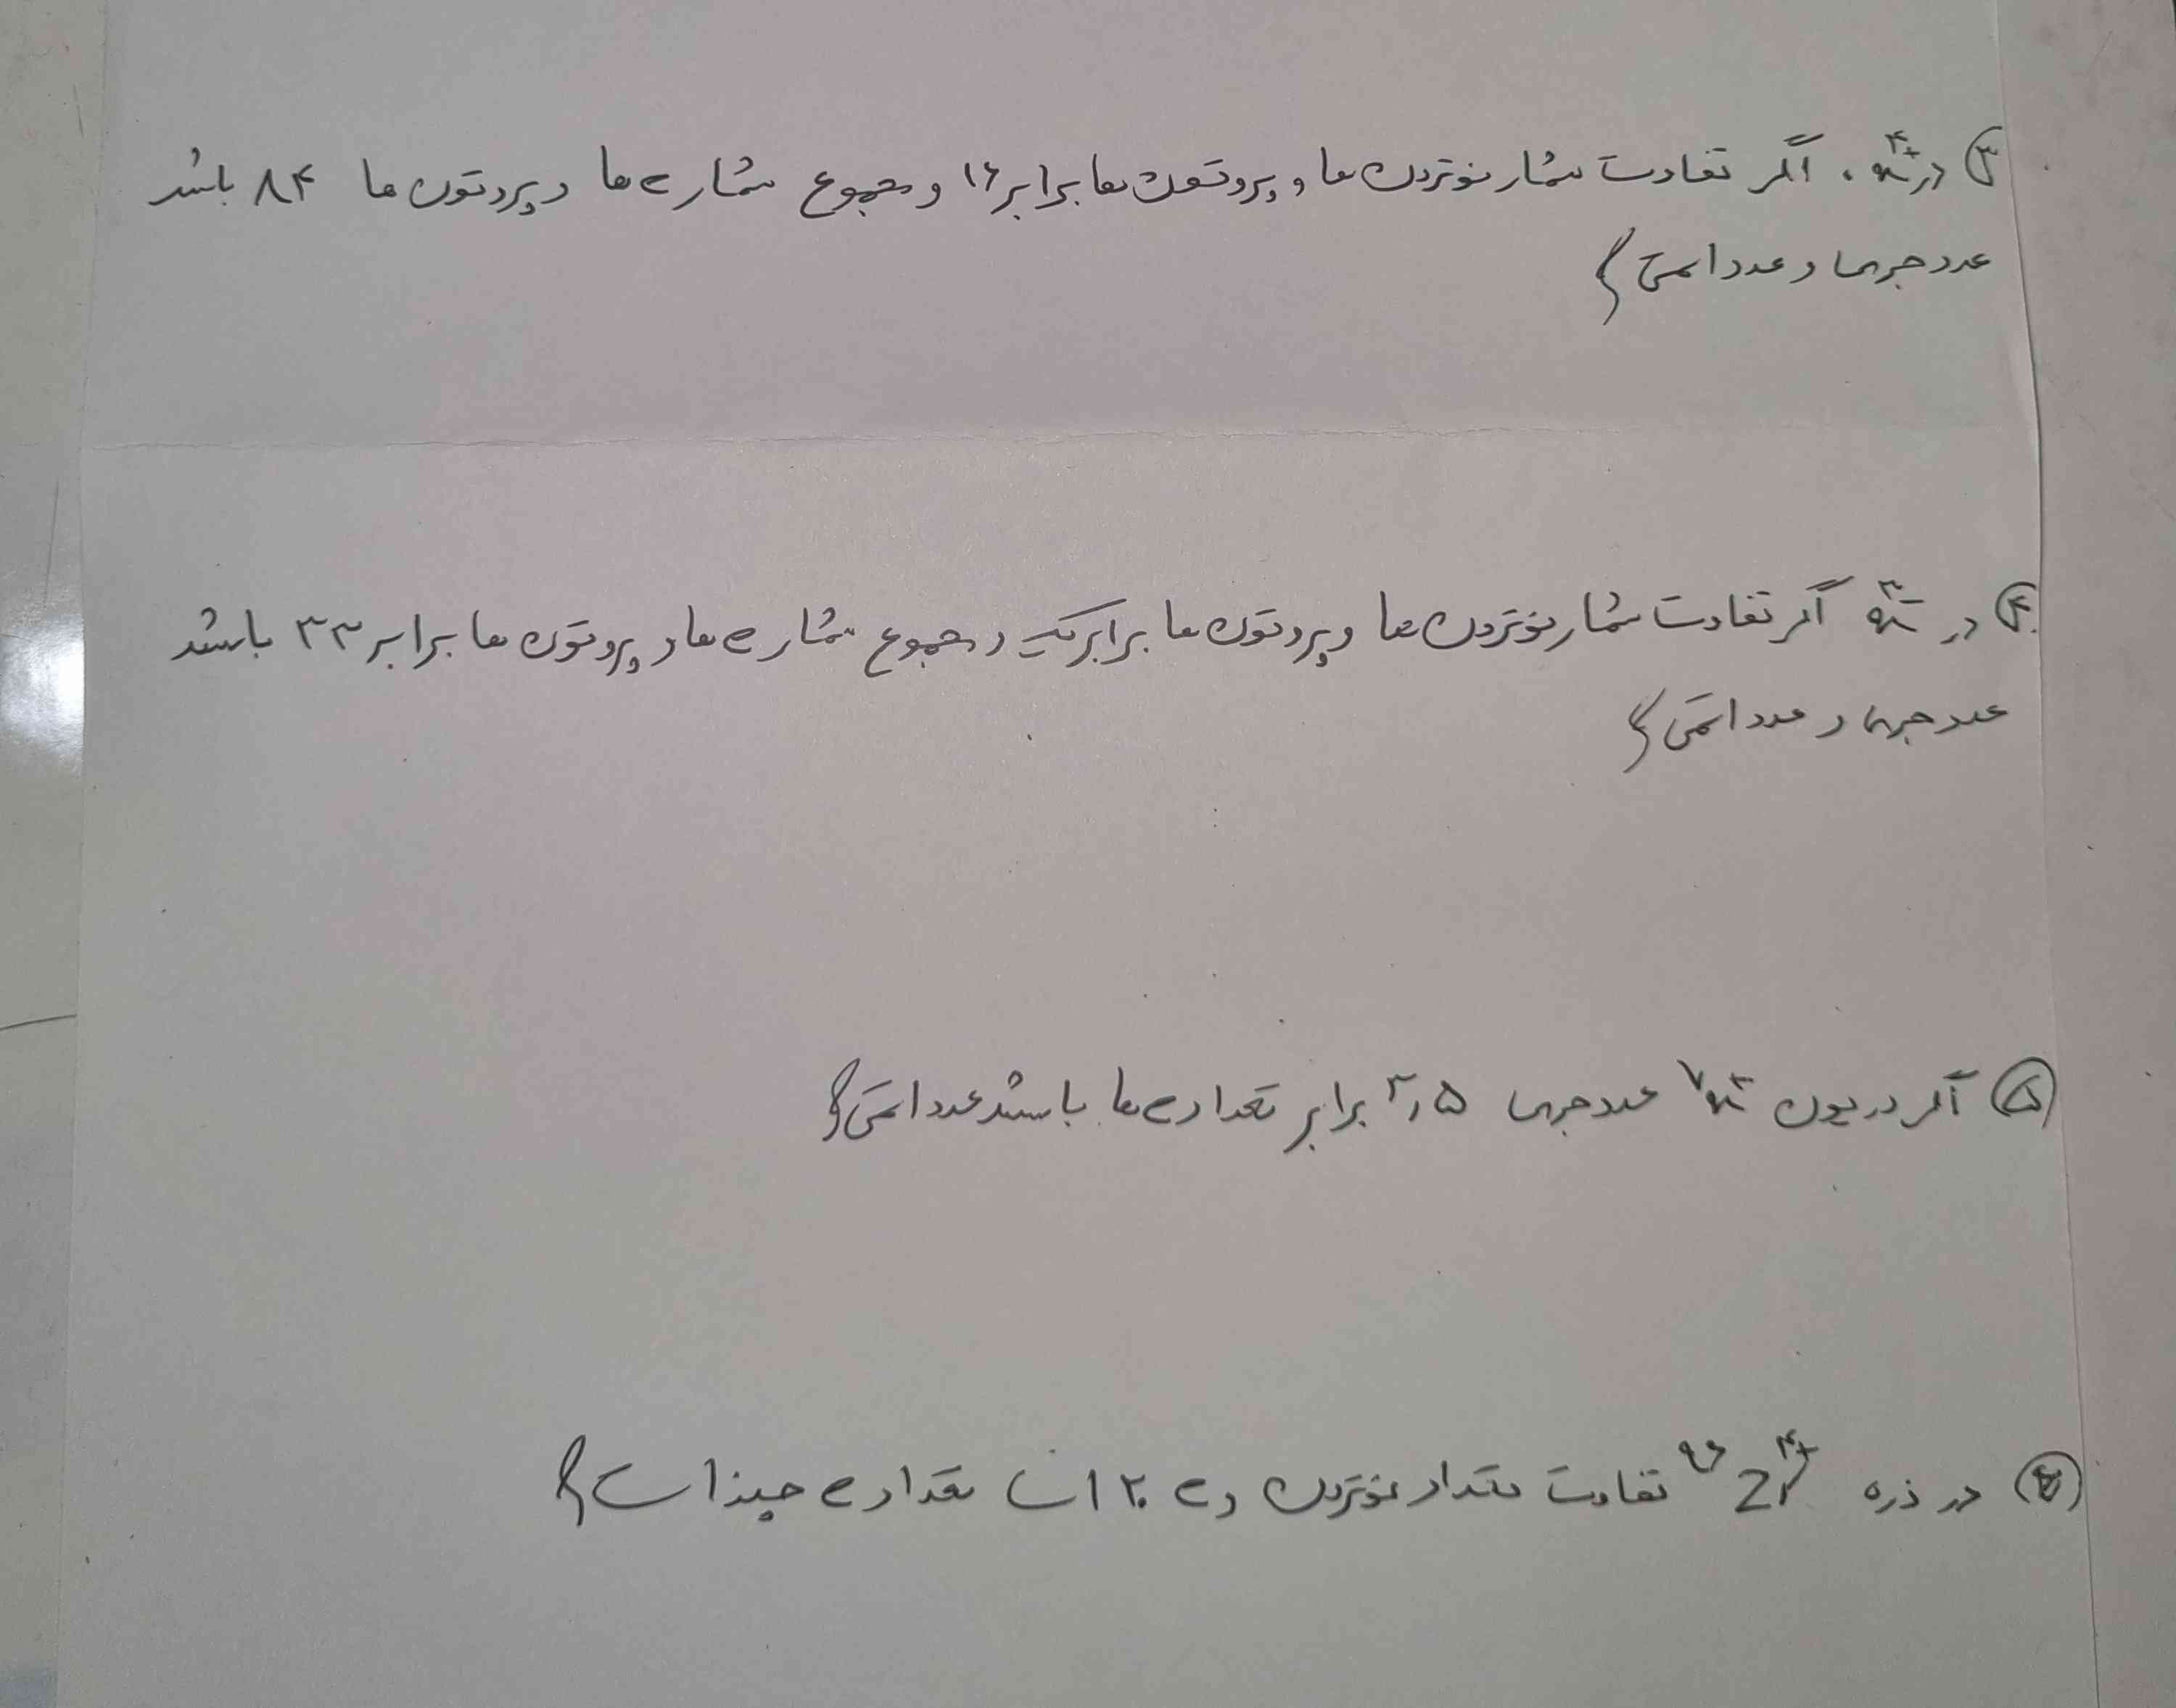 ۳ در X⁴⁺، اگر تفاوت شمار نوترون ها و پروتون ها برابر ۱۶ و مجموع شمار e ها و پروتون ها ۸۴ باشد
عدد جرمی و عدد اتمی ؟
۴ در اگر تفاوت شمار نوترون ها و پروتون ها برابر یک و مجموع شمار e ها و پروتون ها برابر ۳۳ باشد
عدد جرمی و عدد اتمی ؟
۵ اگر در یون عدد جرمی ۲٫۵ برابر تعداد e ها باشد عدد اتمی ؟
در ذره ⁹⁶Zr⁴⁺ تفاوت تعداد نوترون و e ۲۰ است تعداد e چند است ؟